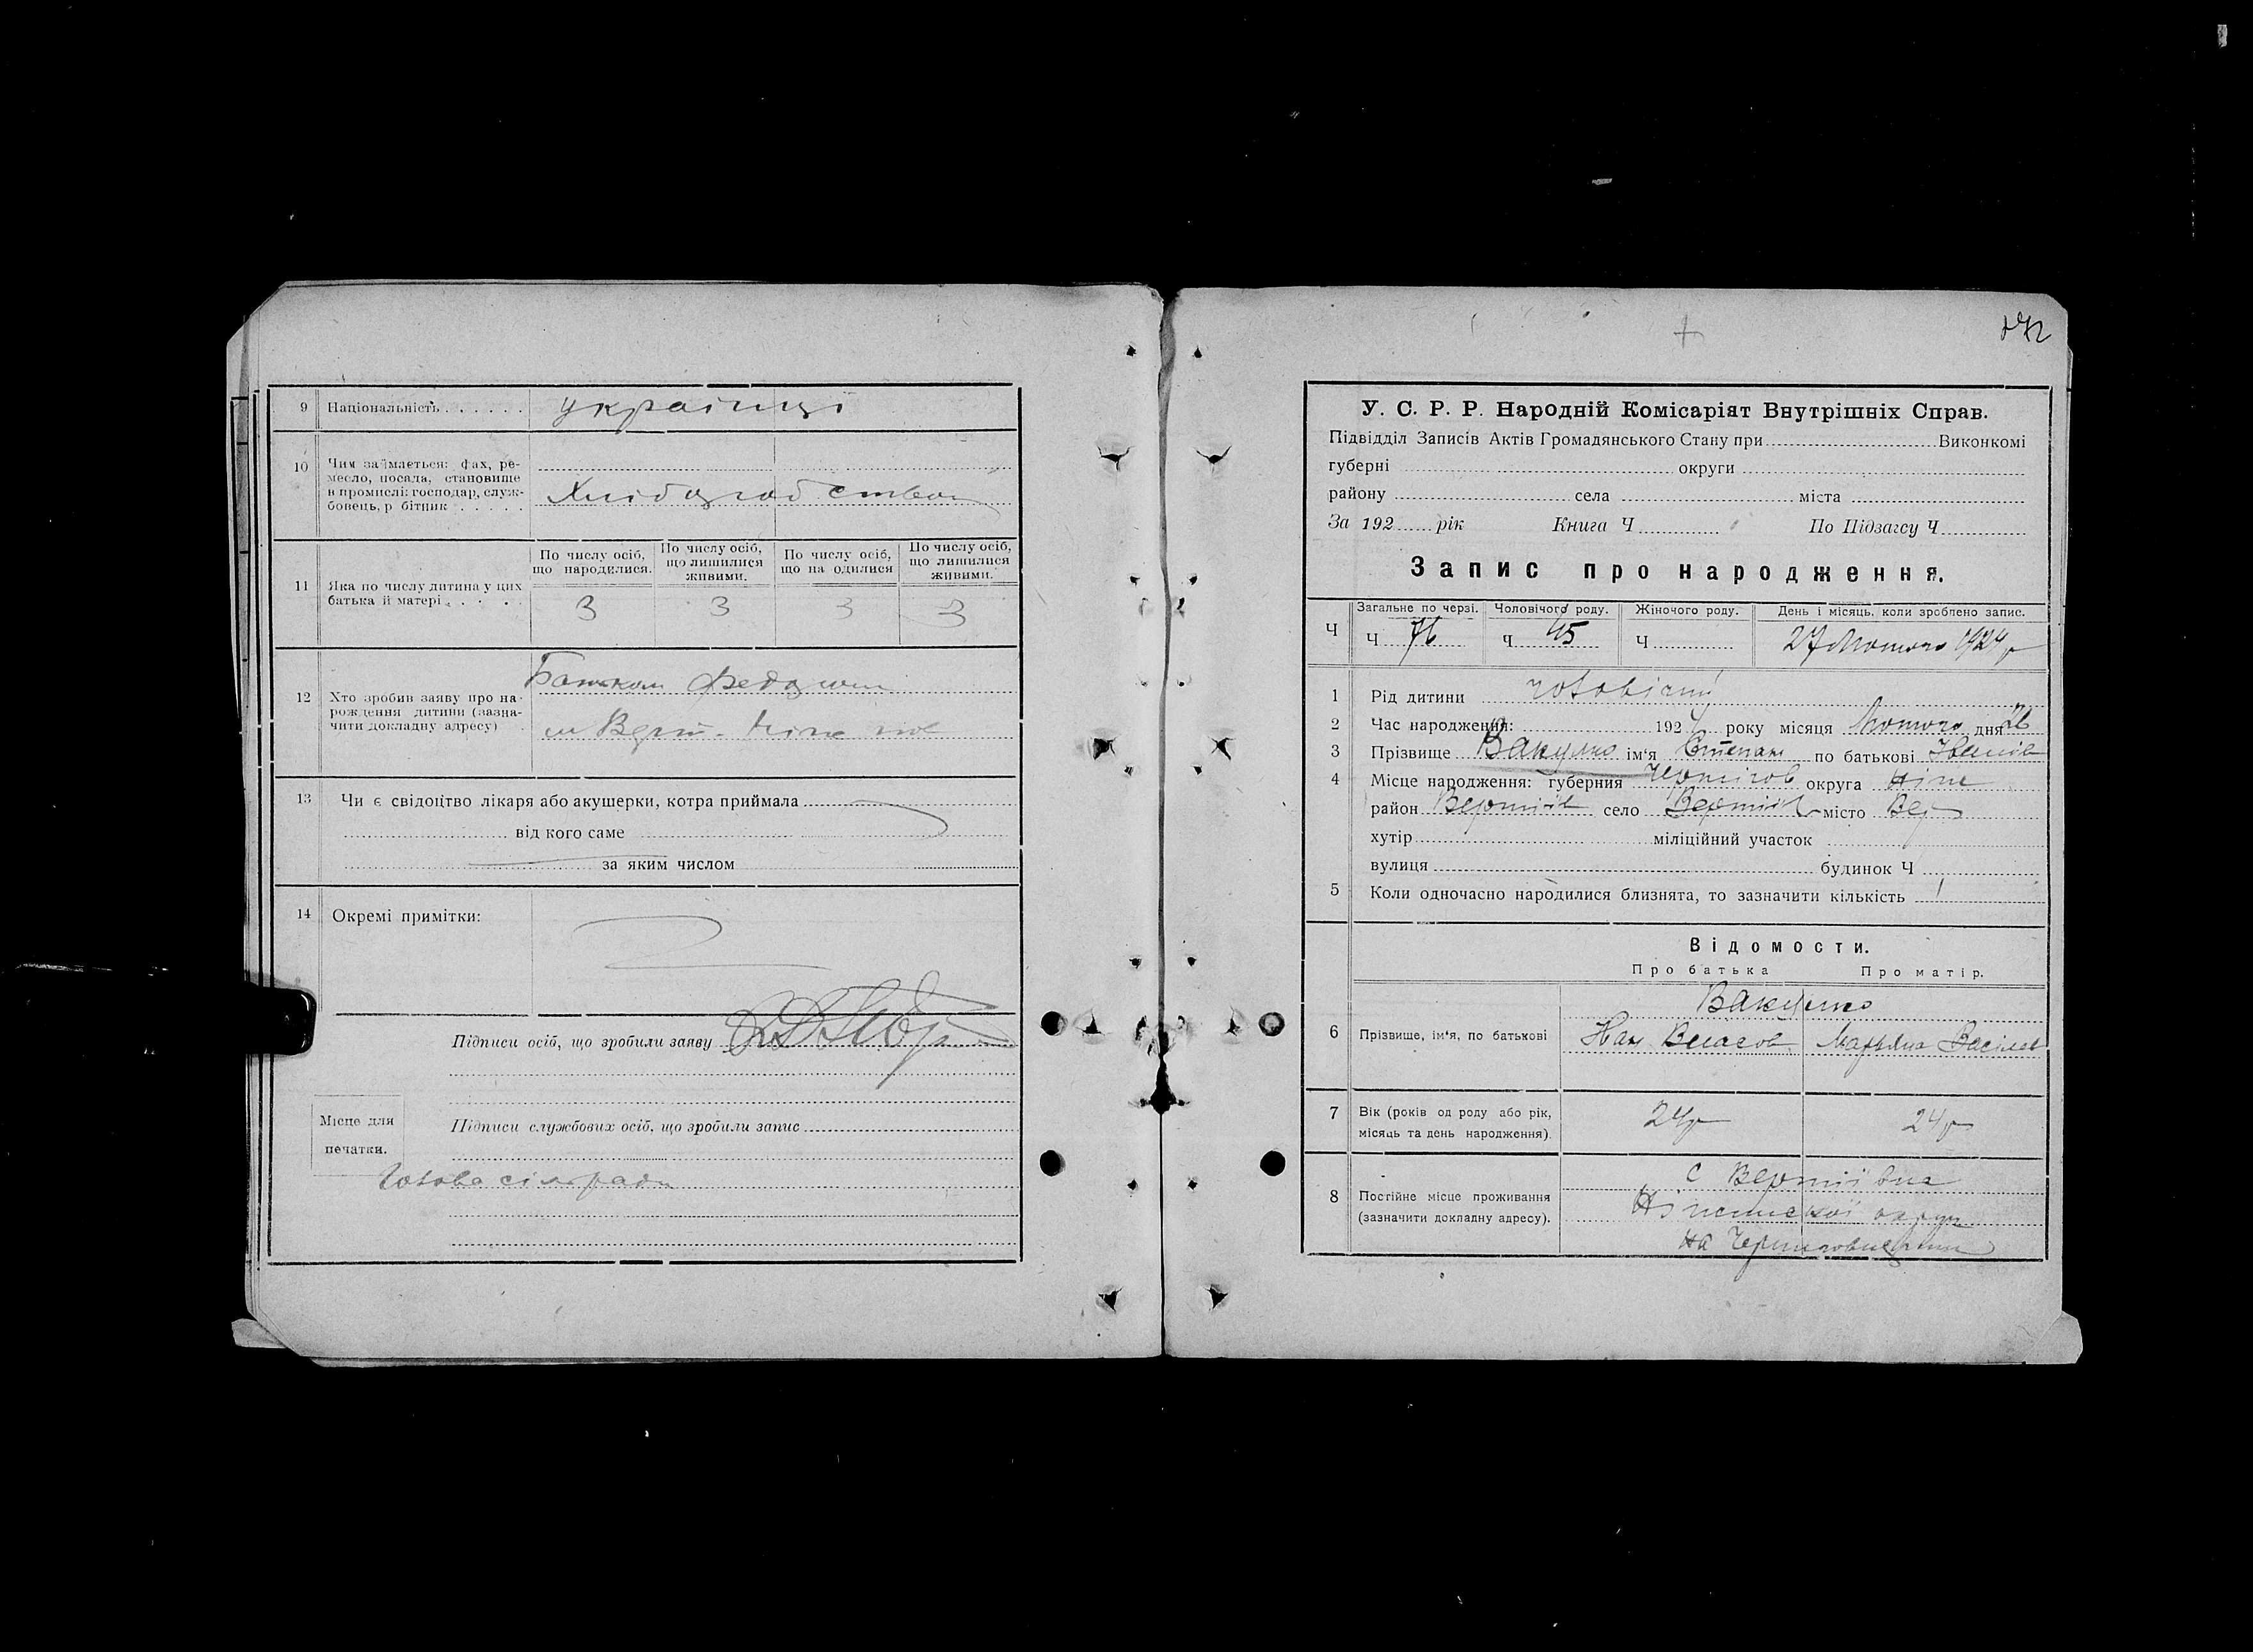 9 Національність . . . . . . українці
10 Чим займається: фах, ре-
месло, посада, становище
в промислі: господар, служ-
бовець, р бітник . . . . .
Хлібороб ством
11 Яка по числу дитина у цих
батька й матері . . . .
По числу осіб, що народилися.
По числу осіб, що лишилися живими.
По числу осіб, що на одилися
По числу осіб, що лишилися живими.
3 3 3 3
12 Хто зробив заяву про на-
рождення дитини (зазна-
чити докладну адресу)
Батьком
13 Чи є свідоцтво лікаря або акушерки, котра приймала
від кого саме
за яким числом
14 Окремі примітки:
Підписи осіб, що зробили заяву
Місце для
печатки.
Підписи службових осіб, що зробили запис
Голова сілради
172
У. С. Р. Р. Народній Комісаріят Внутрішніх Справ.
Підвідділ Записів Актів Громадянського Стану при Виконкомі
губерні округи
району села міста
За 192 рік Книга Ч По Підзагсу Ч
Запис про народження.
Ч
Загальне по черзі. Чоловічого роду. Жіночого роду. День і місяць, коли зроблено запис.
Ч 76 Ч 45 Ч 27 Лютого 1924 р
1 Рід дитини чоловічий
2 Час народження: 1924 року місяця Лютого дня 26
3 Прізвище Вакулко ім‘я Степан по батькові Іванів
4 Місце народження: губерния Чернігов округа Ніж
район Вертіїв село Вертіїв місто Вер
хутір міліційний участок
вулиця будинок Ч
5 Коли одночасно народилися близнята, то зазначити кількість 1
Відомости.
Про батька Про матір.
Вакулко
6 Прізвище, ім‘я, по батькові Іван Власов Марьяна Васілев
7 Вік (років од роду або рік,
місяць та день народження). 24 р 24 р
8 Постійне місце проживання
(зазначити докладну адресу).
С Вертіївка
Ніженської округи
на Черниговщини